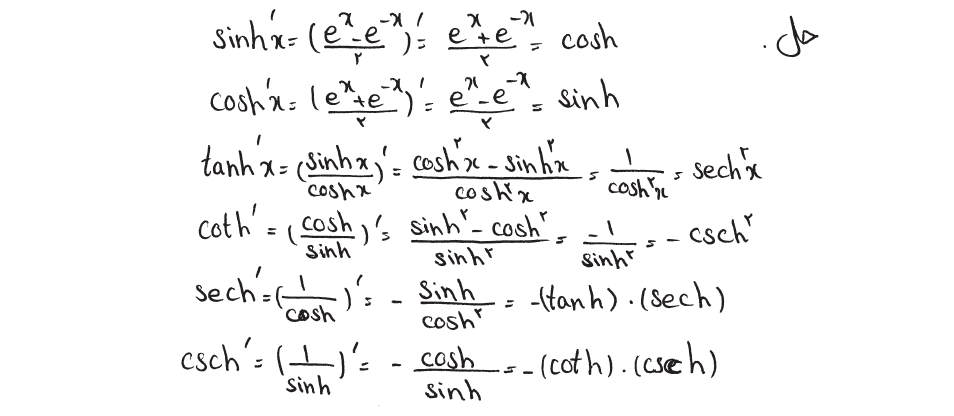 حل.
sinh'x = ((e^x - e^-x)/۲)' = (e^x + e^-x)/۲ = cosh
cosh'x = ((e^x + e^-x)/۲)' = (e^x - e^-x)/۲ = sinh
tanh'x = (sinh x/cosh x)' = (cosh^۲ x - sinh^۲ x)/cosh^۲ x = ۱/cosh^۲ x = sech^۲ x
coth' = (cosh/sinh)' = (sinh^۲ - cosh^۲)/sinh^۲ = -۱/sinh^۲ = - csch^۲
sech' = (۱/cosh)' = - sinh/cosh^۲ = -(tanh).(sech)
csch' = (۱/sinh)' = - cosh/sinh = -(coth).(csch)